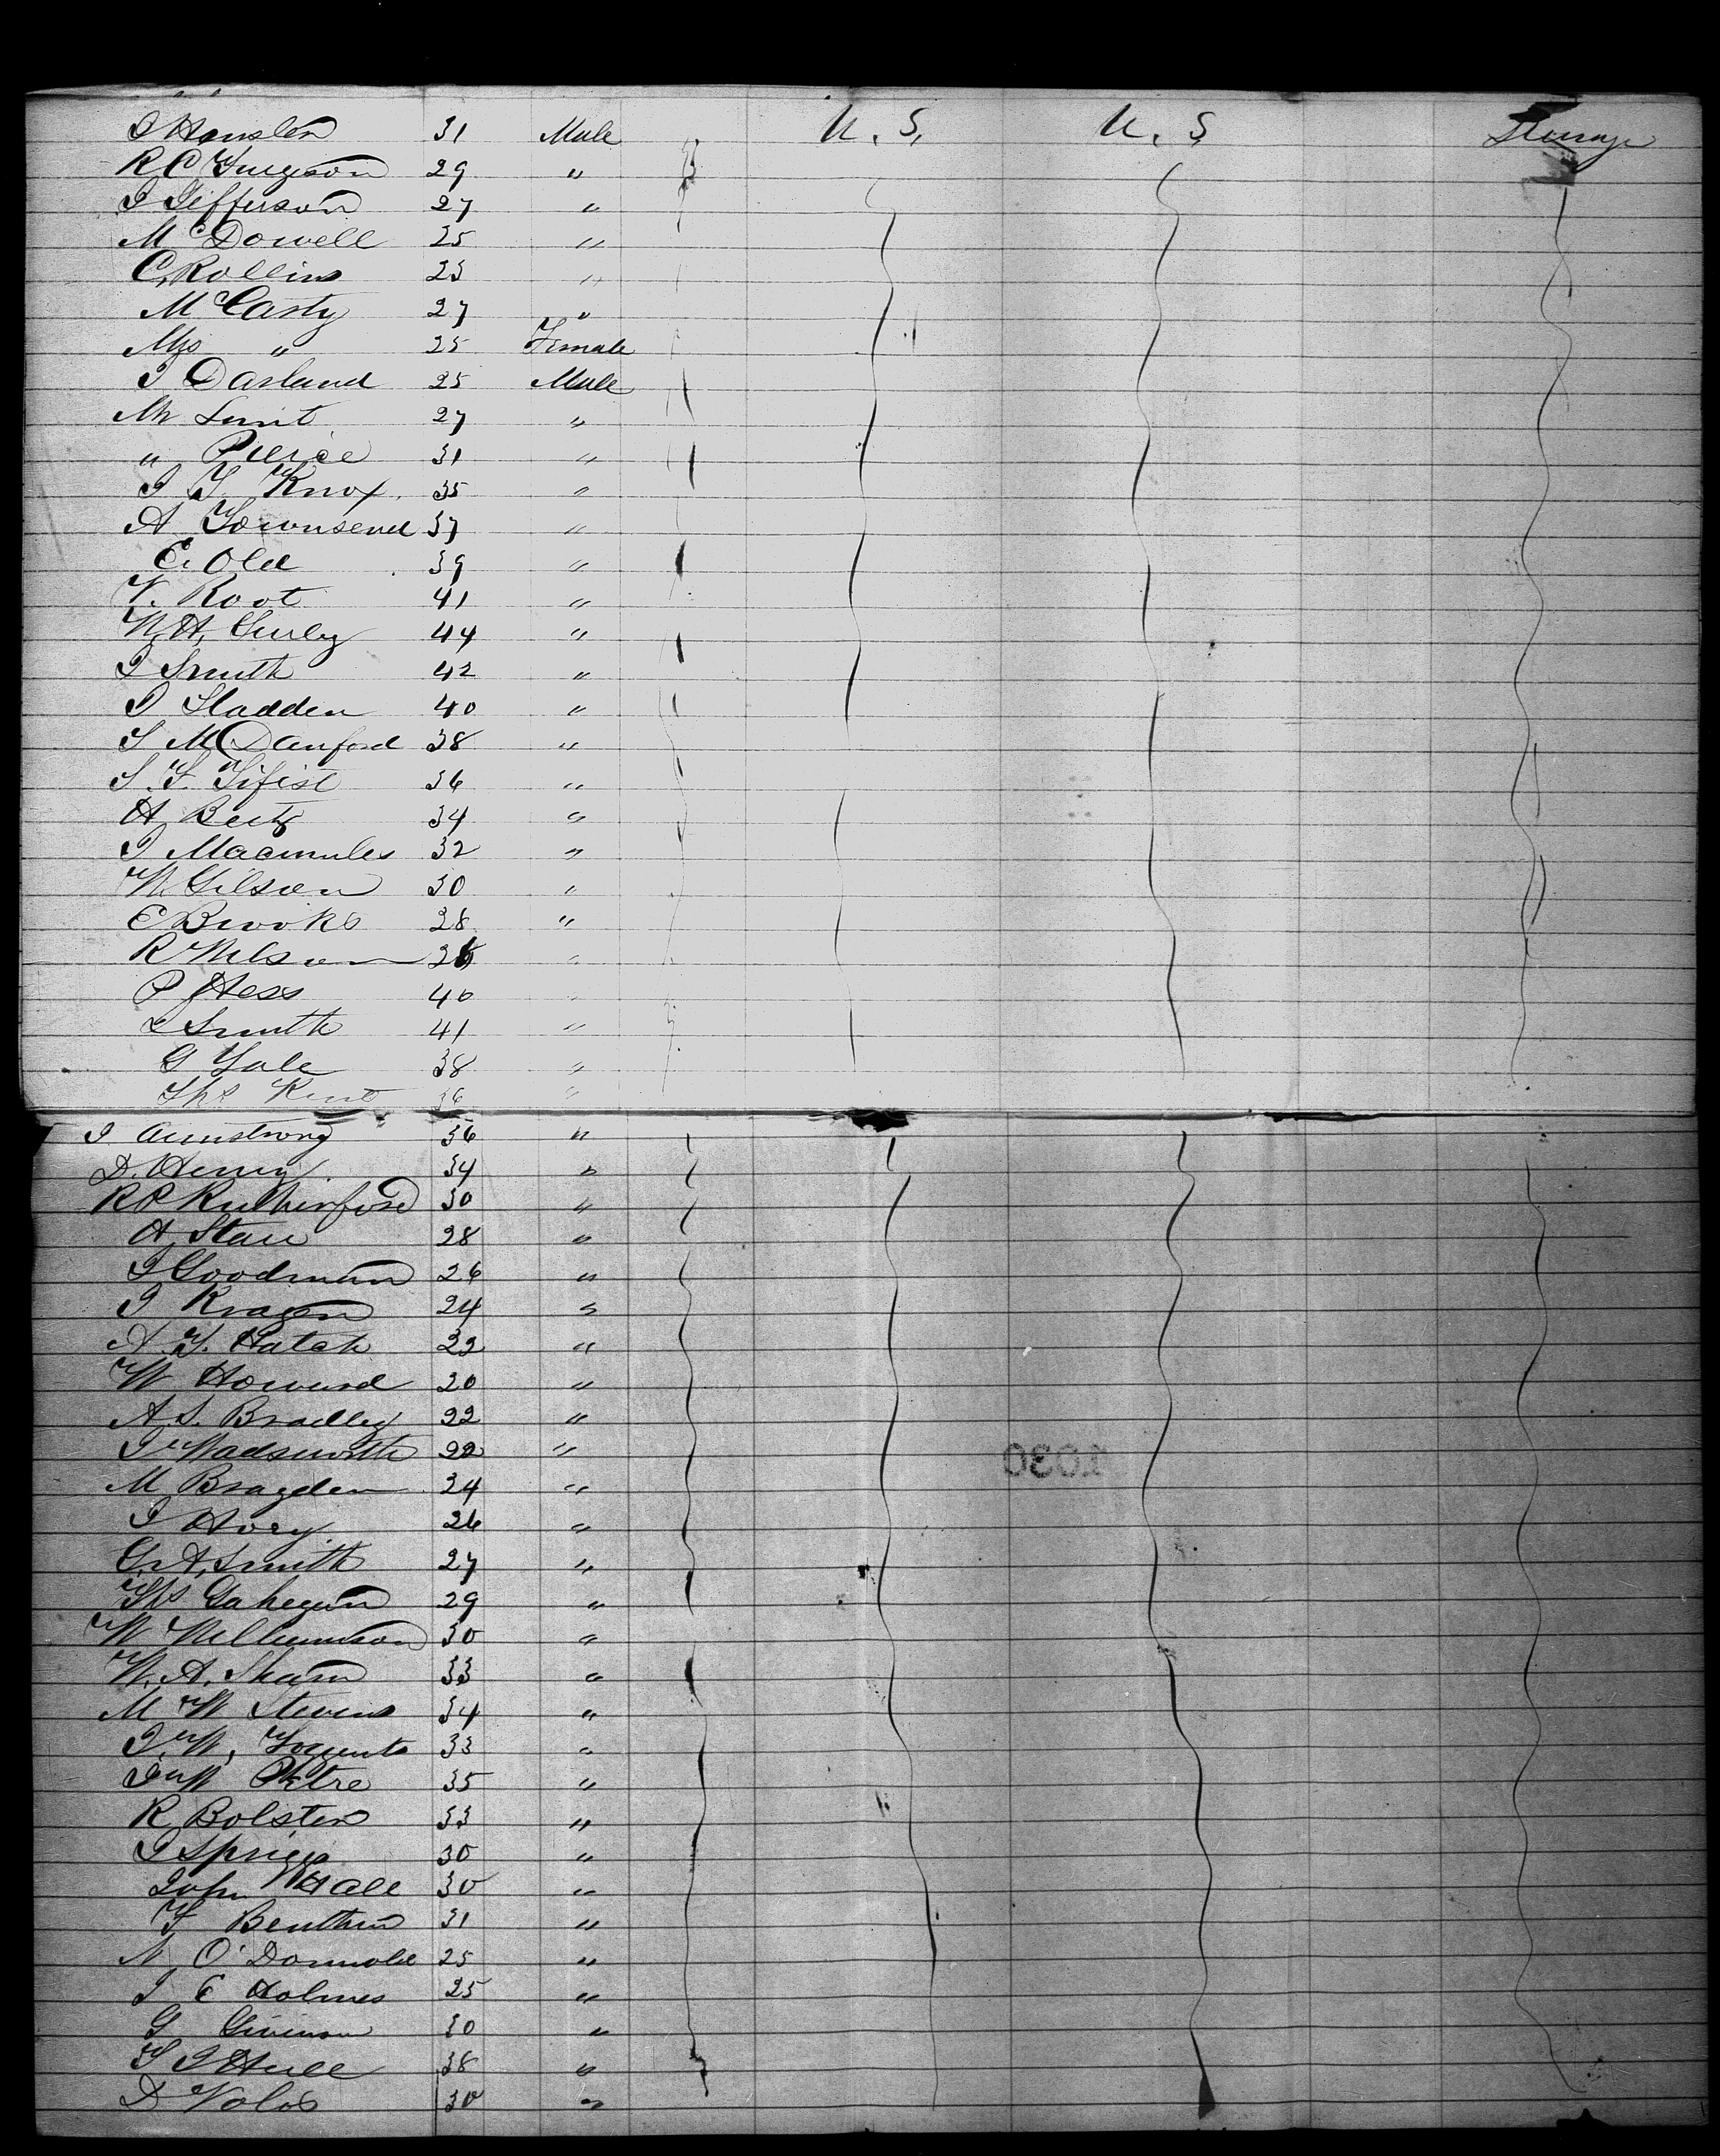 J Hansten 31 Male U. S. U. S Steerage
R C Furgson 29 "
J Jefferson 27 "
McDowell 25 "
C, Rollins 23 "
McCarty 27 "
Mrs " 25 Female
J Darland 25 Male
Mr 27 "
" Pierce 31 "
J T. Knox. 35 "
A Townsend 37 "
E. Old 39 "
V. Root 41 "
W. H. Gurley 44 "
J Smith 42 "
J Sladden 40 "
S McDanford 38 "
S. F. 36 "
H Beets 34 "
J 32 "
W. Gilson 30 "
E Brooks 28 "
R Wilson "
P Hess 40 "
S Smith 41 "
G Yale 38 "
Ths Kent 36 "
J Armstrong 36 "
D. Henry 34 "
R P Rutherford 30 "
A Starr 28 "
J Goodman 26 "
J Kragen 24 "
A. T. Hatch 22 "
W Howard 20 "
A. S. Bradley 22 "
J Wadsworth 22 "
M Bragden 24 "
J Hory 26 "
G. A. Smith 27 "
Ths Gahegan 29 "
W Williamson 30 "
W. A. Sharn 33 "
M W Stevens 34 "
J. W. 33 "
J W Petre 35 "
R Bolsten 33 "
J Spriggs 30 "
John Hall 30 "
T Benthen 31 "
N O'Donnold 25 "
J E Holmes 25 "
G 30 "
T J Hull 38 "
D Nolas 30 "
1030